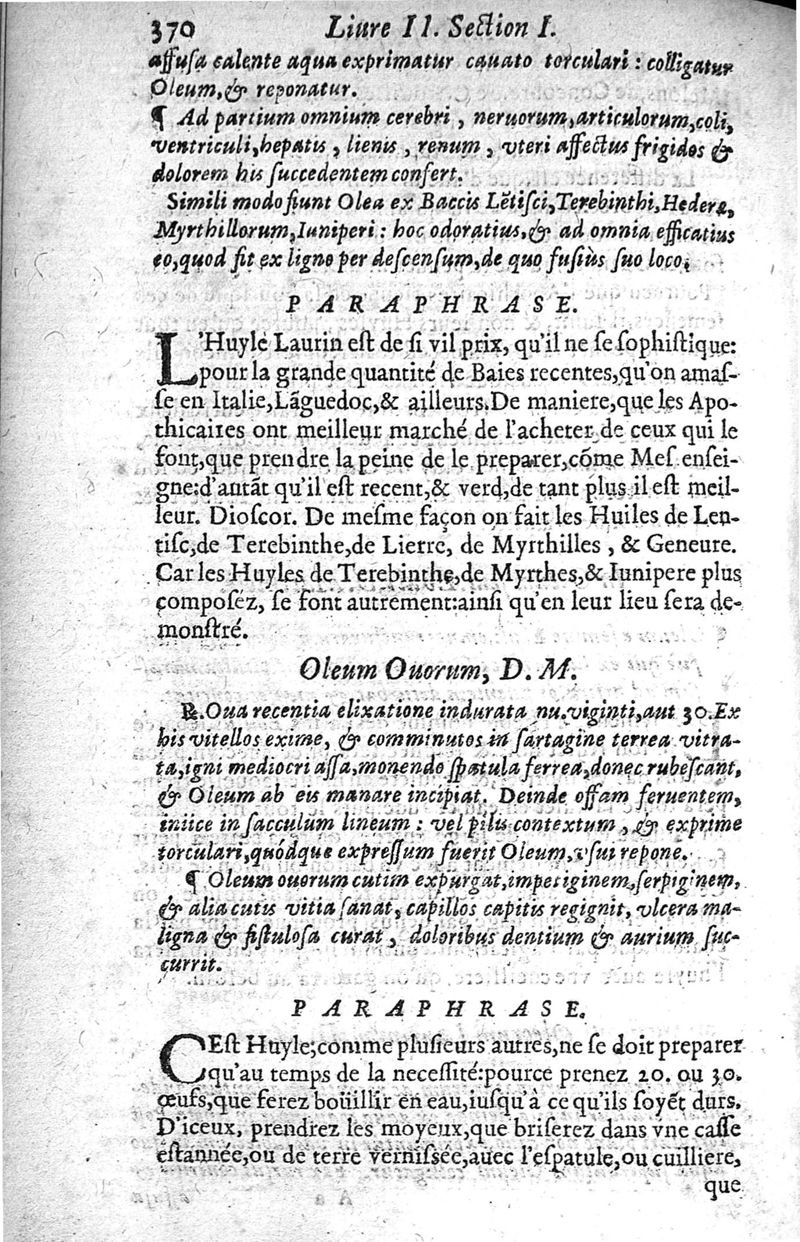 370 Liure II. Section I.
affusa calente aqua exprimatur cauato torculari : colligatur
Oleum, & reponatur.
¶ Ad partium omnium cerebri , neruorum, articulorum, coli,
ventriculi, hepatis , lienis , renum , vteri affectus frigidos &
dolorem his succedentem confert.
Simili modo fiunt Olea ex Baccis Lẽtisci, Terebinthi, Hederæ,
Myrthillorum, Iuniperi : hoc odoratius, & ad omnia efficatius
eo, quod fit ex ligno per descensum, de quo fusiùs suo loco.
PARAPHRASE.
L'Huyle Laurin est de si vil prix, qu'il ne se sophistique:
pour la grande quantité de Baies recentes, qu'on amas-
se en Italie, Lãguedoc, & ailleurs. De maniere, que les Apo-
thicaires ont meilleur marché de l'acheter de ceux qui le
font, que prendre la peine de le preparer, cõme Mes. ensei-
gne: d'autãt qu'il est recent, & verd, de tant plus il est meil-
leur. Dioscor. De mesme façon on fait les Huiles de Len-
tisc, de Terebinthe, de Lierre, de Myrthilles , & Geneure.
Car les Huyles de Terebinthe, de Myrthes, & Iunipere plus
composéz, se font autrement: ainsi qu'en leur lieu sera de-
monstré.
Oleum Ouorum, D. M.
℞. Oua recentia elixatione indurata nu. viginti, aut 30. Ex
his vitellos exime, & comminutos in sartagine terrea vitra-
ta, igni mediocri assa, monendo spatula ferrea, donec rubescant,
& Oleum ab eis manare incipiat. Deinde offam feruentem,
iniice in sacculum lineum : vel pilis contextum , & exprime
torculari, quódque expressum fuerit Oleum, vsui repone.
¶ Oleum ouorum cutim expurgat, impetiginem, serpiginem,
& alia cutis vitia sanat, capillos capitis regignit, vlcera ma-
ligna & fistulosa curat , doloribus dentium & aurium suc-
currit.
PARAPHRASE.
CEst Huyle, comme plusieurs autres, ne se doit preparer
qu'au temps de la necessité: pource prenez 20. ou 30.
œufs, que ferez boüillir en eau, iusqu'à ce qu'ils soyẽt durs.
D'iceux, prendrez les moyeux, que briserez dans vne casse
estannée, ou de terre vernissée, auec l'espatule, ou cuilliere,
que